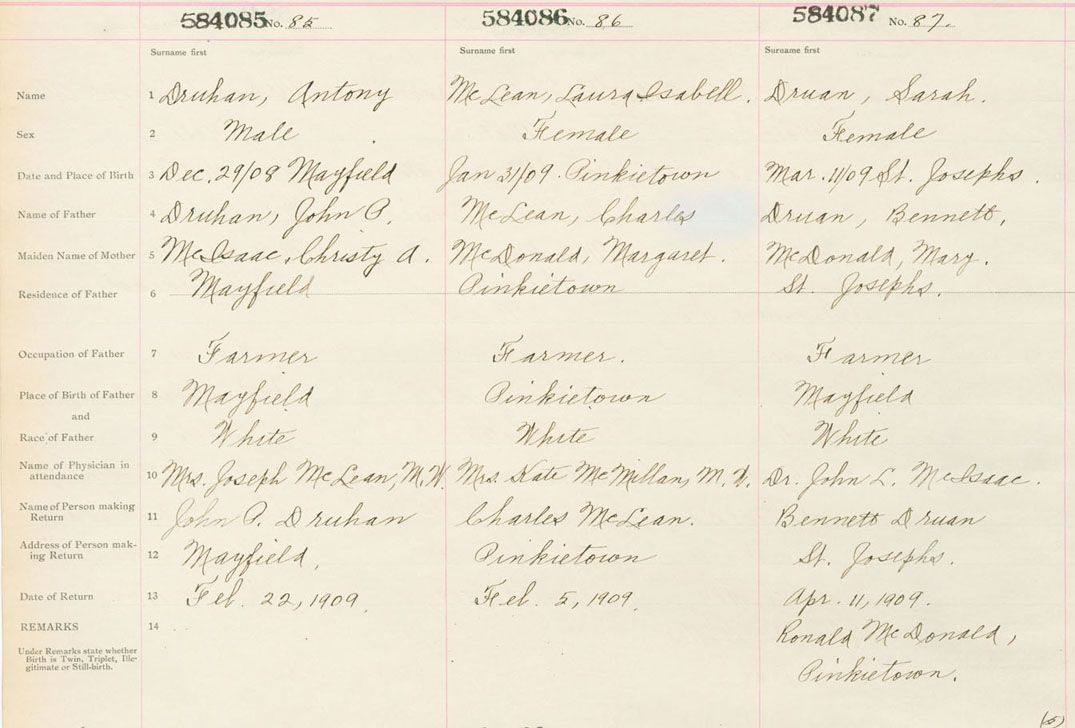 584085 No. 85 584086 No. 86 584087 No. 87.
Surname first Surname first Surname first
Name 1 Druhan, Antony McLean, Laura Isabell. Druan, Sarah.
Sex 2 Male Female Female
Date and Place of Birth 3 Dec. 29/08 Mayfield Jan 31/09. Pinkietown Mar. 11/09 St. Josephs.
Name of Father 4 Druhan, John P. McLean, Charles Druan, Bennett,
Maiden Name of Mother 5 McIsaac, Christy A. McDonald, Margaret. McDonald, Mary.
Residence of Father 6 Mayfield Pinkietown St. Josephs.
Occupation of Father 7 Farmer Farmer. Farmer
Place of Birth of Father 8 Mayfield Pinkietown Mayfield
and
Race of Father 9 White White White
Name of Physician in
attendance 10 Mrs. Joseph McLean, M.W. Mrs. Kate McMillan, M.W. Dr. John L. McIsaac.
Name of Person making
Return 11 John P. Druhan Charles McLean. Bennett Druan
Address of Person mak-
ing Return 12 Mayfield, Pinkietown St. Josephs.
Date of Return 13 Feb. 22, 1909. Feb. 5, 1909. Apr. 11, 1909.
REMARKS 14 Ronald McDonald,
Under Remarks state whether
Birth is Twin, Triplet, Ille-
gitimate or Still-birth.
Pinkietown.
(5)